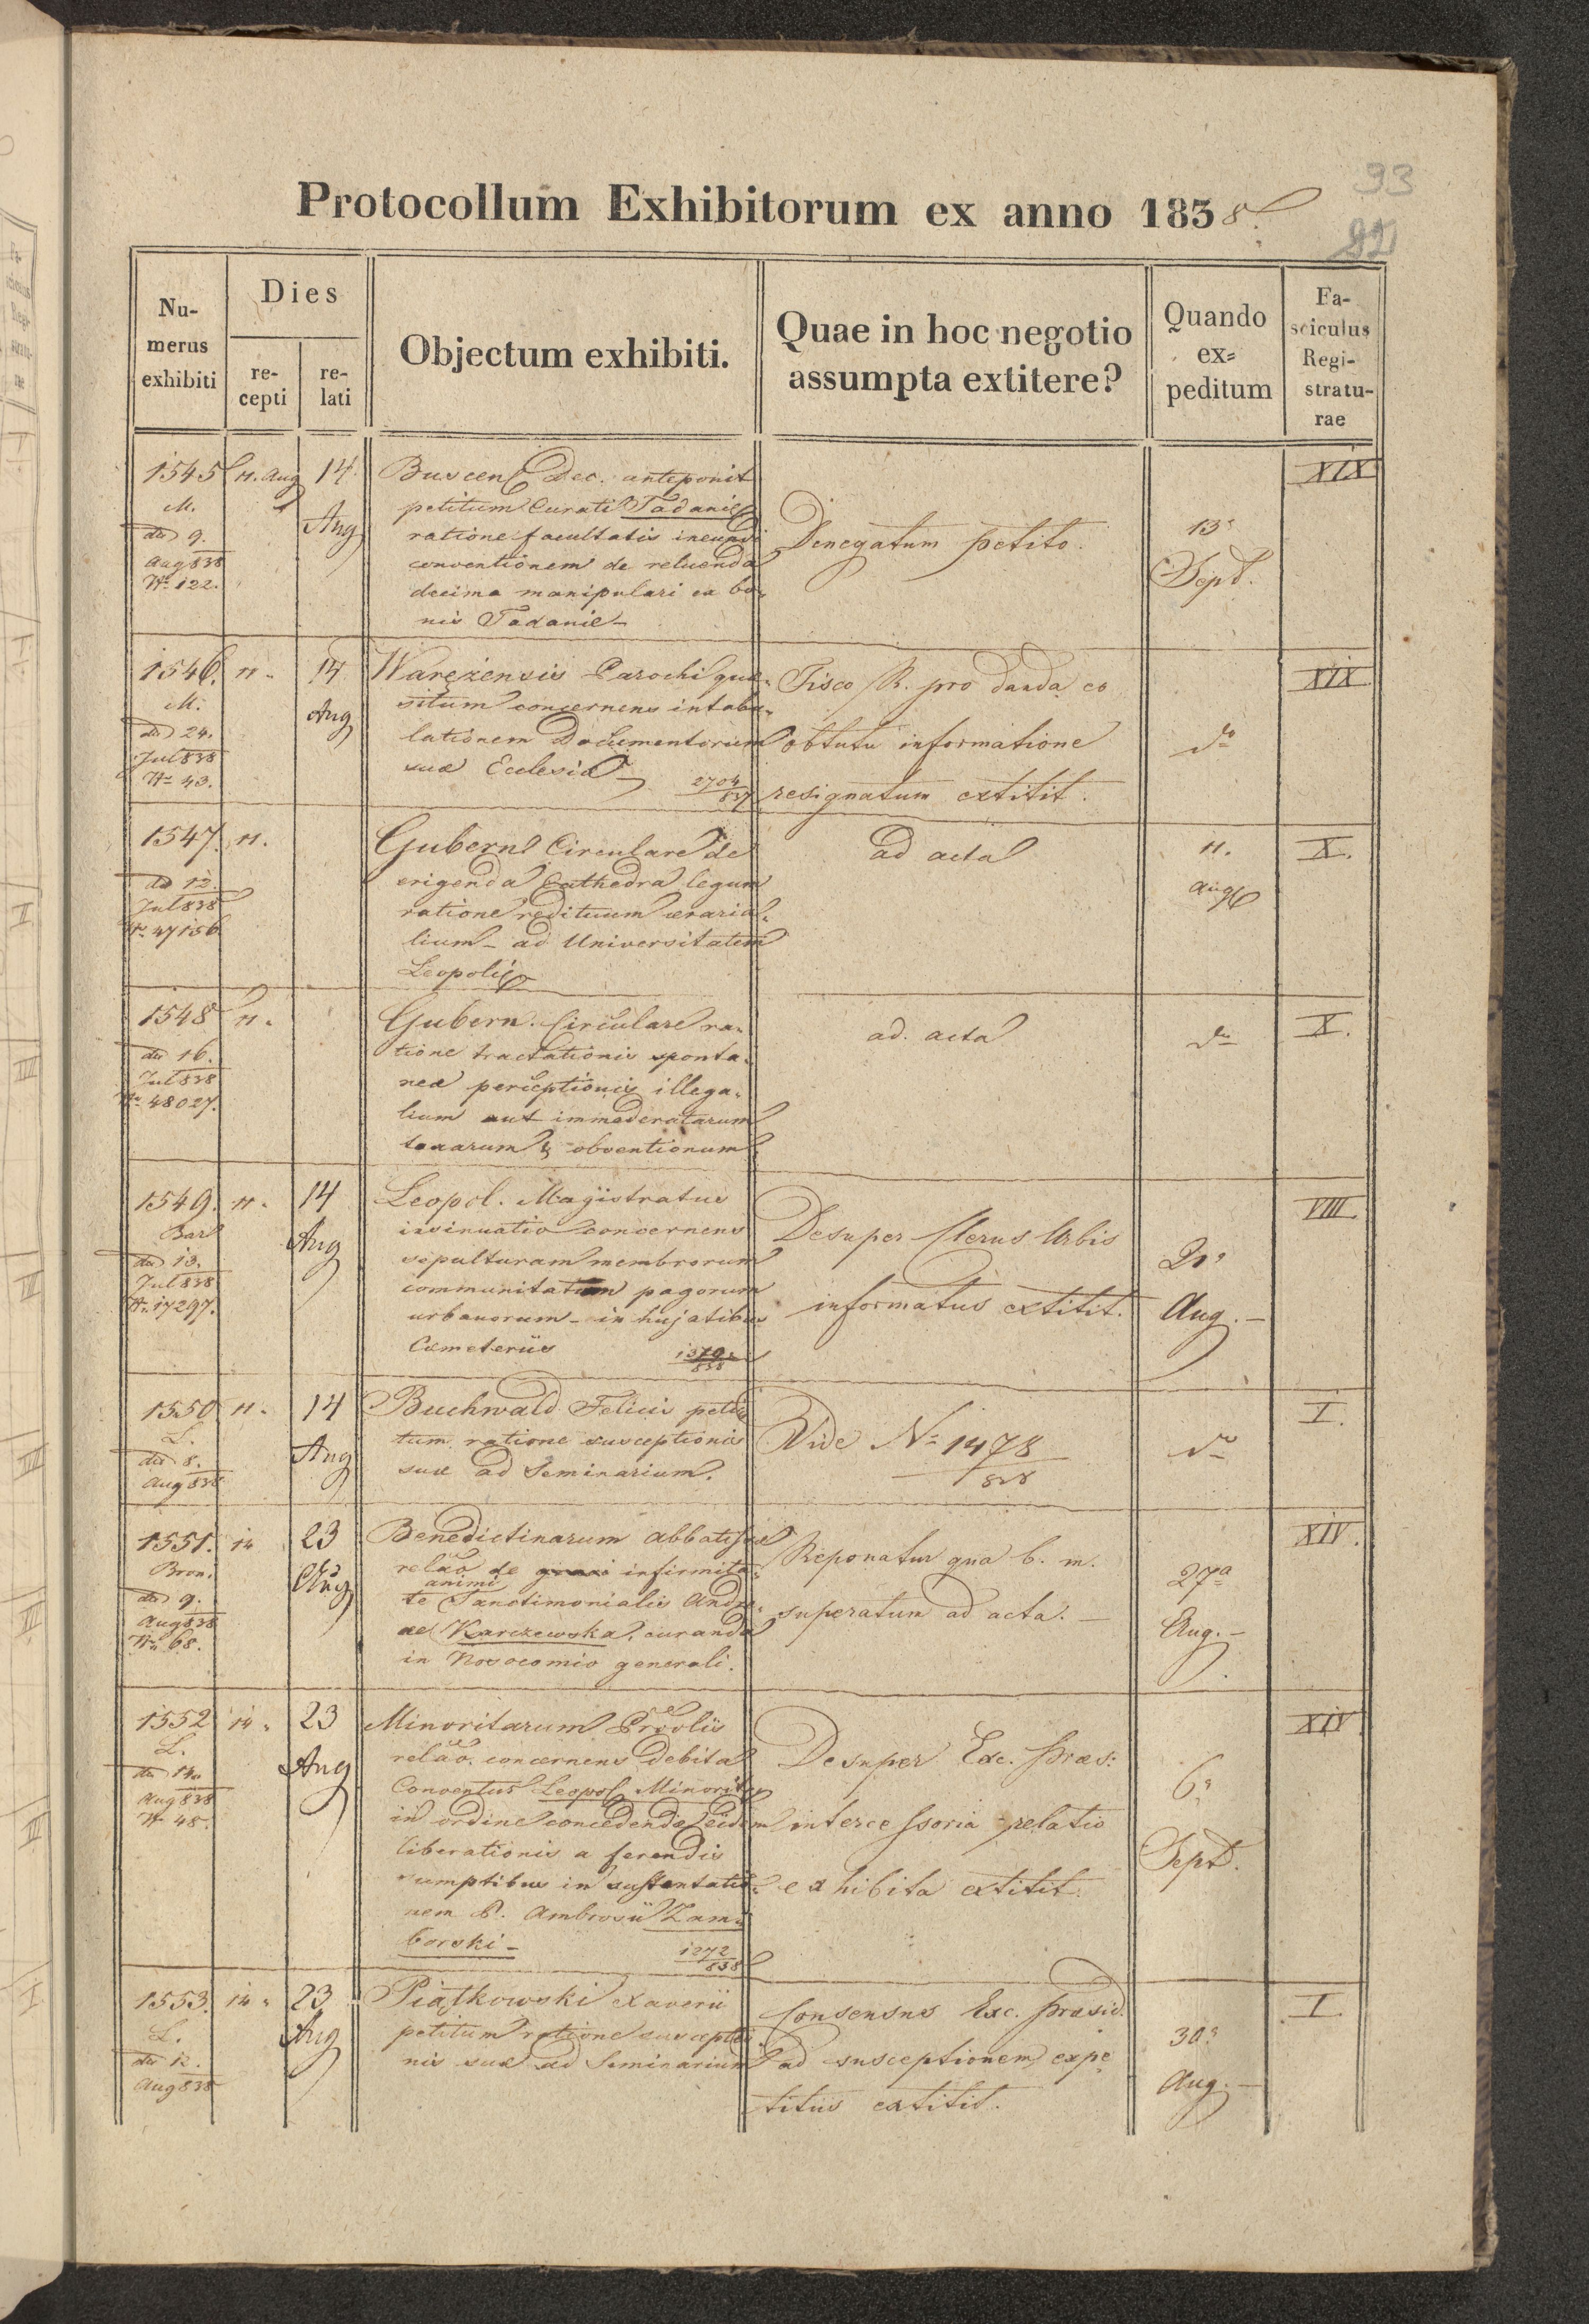 93
92
Protocollum Exhibitorum ex anno 1838.
Nu-
merus
exhibiti
Dies
re-
cepti
re-
lati
Objectum exhibiti.
Quae in hoc negotio
assumpta extitere?
Quando
ex=
peditum
Fa-
sciculus
Regi-
stratu-
rae
1545
M.
dto 9.
Aug 838
No 122.
11. Aug
14
Aug
Buscens Dec. anteponit
petitum Curati Tadanie
ratione facultatis ineundi
conventionem de reluenda
decima manipulari ex bo-
nis Tadanie
Denegatum petito.
13a
Sept.
XIX
1546.
M.
dto 24.
Jul 838
No 43.
11.
14
Aug
Warezensis Parochi quæ-
situm concernens intabu-
lationem Documentorum
suæ Ecclesiæ
2704
837
Fisco R. pro danda eo
obtutu informatione
resignatum extitit.
do
XIX
1547.
dto 12.
Jul 838
No 47156
11.
Gubern Circulare de
erigenda Cathedra legum
ratione redituum æraria-
lium - ad Universitatem
Leopoli
ad acta
11.
Aug
X.
1548
dto 16.
Jul 838
No 48027.
11.
Gubern. Circulare ra-
tione tractationis sponta-
neæ perceptionis illega-
lium aut immoderatarum
taxarum & obventionum
ad. acta
do
X.
1549.
Bar
dto 13.
Jul 838
No 17297.
11.
14
Aug
Leopol. Magistratus
insinuatio concernens
sepulturam membrorum
communitatum pagorum
urbanorum - in hujatibus
Cæmeteriis
838
Desuper Clerus Urbis
informatus extitit.
21a
Aug. -
VIII.
1550
L.
dto 8.
Aug 838
11.
14
Aug
Buchwald Felicis peti-
tum ratione susceptionis
suæ ad Seminarium.
Vide No 1478
838
do
I.
1551.
Bron.
dto 9.
Aug 838
No 68.
14
23
Aug
Benedictinarum Abbatissæ
relão de infirmita-
animi
te Sanctimonialis Andre-
ae Karczewska, curanda
in Nosocomio generali.
Reponatur qua b. m.
superatum ad acta. -
27a
Aug. -
XIV.
1552
L.
dto 14.
Aug 838
No 48.
14.
23
Aug
Minoritarum Prov̄lis
relão. concernens debita
Conventus Leopol Minorit
in ordine concedendæ eidem
liberationis a ferendis
sumptibus in sustentatio-
nem P. Ambrosii Zam-
borski -
1272
838
Desuper Exc. Præs:
intercessoria relatio
exhibita extitit.
6a
Sept.
XIV.
1553.
L.
dto 12.
Aug 838
14.
23
Aug
Piątkowski Xaverii
petitum ratione susceptio-
nis suæ ad Seminarium
Consensus Exc. Præsid.
ad susceptionem expe-
titus extitit.
30a
Aug. -
I.